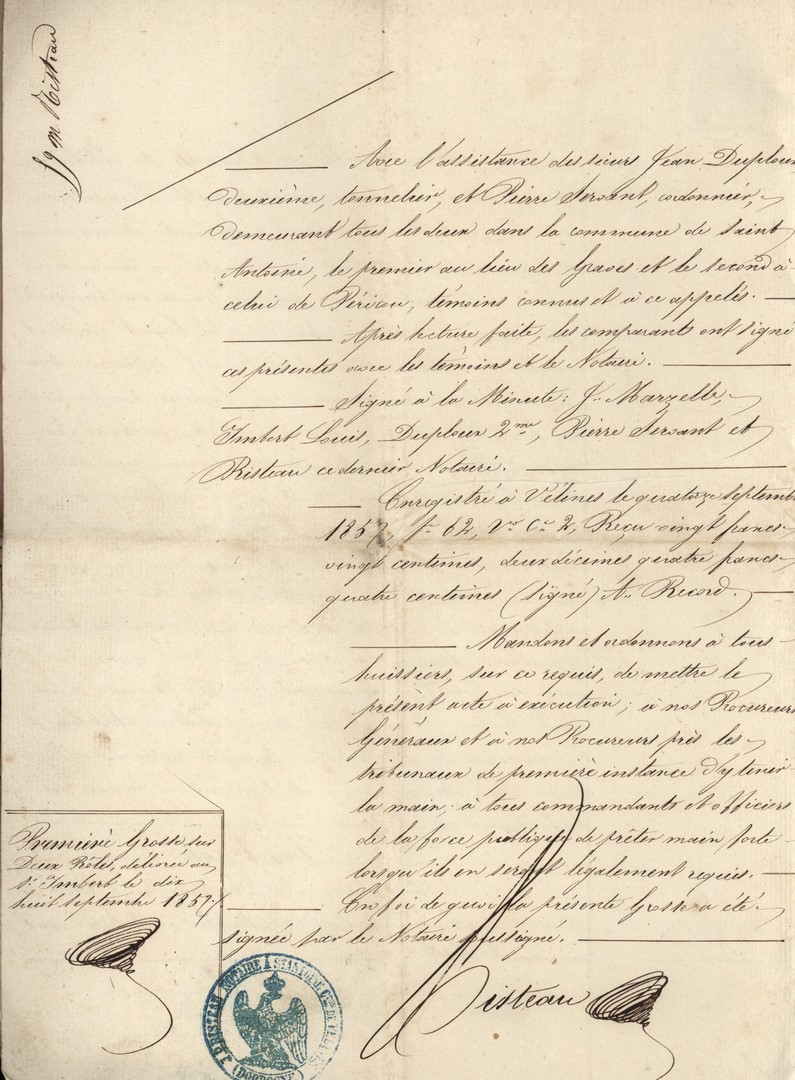 Risteau
Avec l'assistance des sieurs Jean Duploux
deuxième, tonnelier, et Pierre Servant, cordonnier,
demeurant tous les deux dans la commune de Saint
Antoine, le premier au lieu des Graves et le second à
celui de Péricou, témoins connus et à ce appelés.
Après lecture faite, les comparants ont signé
ces présentes avec les témoins et le Notaire.
Signé à la Minute: J. Marzelle,
Imbert Louis, Duploux 2me, Pierre Servant et
Risteau ce dernier Notaire.
Enregistré à Vélines le quatorze septembre
1857, fo 62, Vo Ce 2, Reçu vingt francs
vingt centimes, deux décimes quatre francs
quatre centimes (signé) A. Record.
Mandons et ordonnons à tous
huissiers, sur ce requis, de mettre le
présent acte à exécution; à nos Procureurs
Généraux et à nos Procureurs près les
tribunaux de première instance d'y tenir
la main; à tous commandants et officiers
de la force publique de prêter main forte
lorsqu'ils en seront légalement requis.
En foi de quoi la présente Grosse a été
signée par le Notaire soussigné.
Risteau
Première Grosse sur
Deux Rôles, délivrée au
sr. Imbert le dix
huit septembre 1857./.
RISTEAU NOTAIRE À ST ANTOINE
(DORDOGNE)